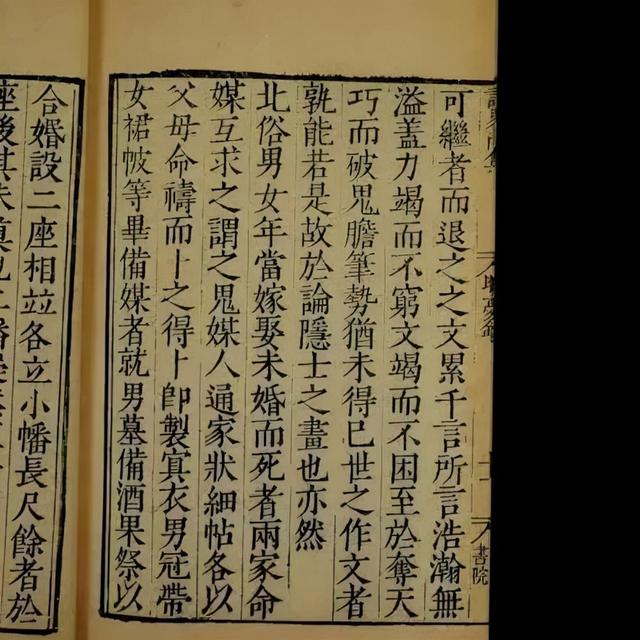 書院
可繼者而退之之文累千言所言浩瀚無
溢蓋力竭而不窮文竭而不困至於奪天
巧而破鬼膽筆勢猶未得已世之作文者
孰能若是故於論隱士之畫也亦然
北俗男女年當嫁娶未婚而死者兩家命
媒互求之謂之鬼媒人通家狀細帖各以
父母命禱而卜之得卜卽製冥衣男冠帶
女裙帔等畢備媒者就男墓備酒果祭以
合婚設二座相並各立小幡長尺餘者於
座後其未奠也二幡